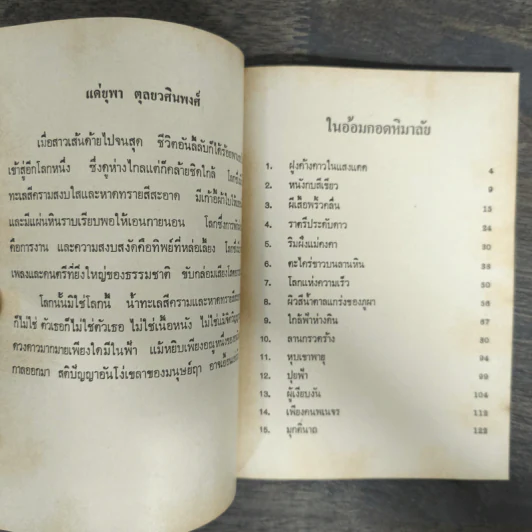 แด่ยุพา ตุลยวศินพงศ์
เมื่อสาวเส้นด้ายไปจนสุด ชีวิตอันลี้ลับก็ได้ร้อย
เข้าสู่อีกโลกหนึ่ง ซึ่งดูห่างไกลแต่ก็คล้ายชิดใกล้
ทะเลสีครามสงบใสและหาดทรายสีสะอาด มีเก้าอี้ผ้าใบ
และมีแผ่นหินราบเรียบพอให้เอนกายนอน โลกซึ่งการ
คือการงาน และความสงบสงัดคือทิพย์ที่หล่อเลี้ยง
เพลงและดนตรีที่ยิ่งใหญ่ของธรรมชาติ ขับกล่อมเลี้ยงโลก
โลกนั้นมิใช่โลกนี้ น้ำทะเลสีครามและหาดทราย
ก็ไม่ใช่ ตัวเธอก็ไม่ใช่ตัวเธอ ไม่ใช่เนื้อหนัง ไม่ใช่
ดวงดาวมากมายเพียงใดมีในฟ้า แม้หยิบเพียงอณูหนึ่ง
กาลออกมา สติปัญญาอันโง่เขลาของมนุษย์ฤา
ในอ้อมกอดหิมาลัย
1. ฝูงค้างคาวในแสงแดด 4
2. หนังกบสีเขียว 9
3. ผีเสื้อพริ้วคลื่น 15
4. ราตรีประดับดาว 24
5. ริมฝั่งแม่คงคา 30
6. ตะไคร่ขาวบนลานหิน 38
7. โลกแห่งความเร็ว 50
8. ผิวสีน้ำตาลแกร่งของภูผา 58
9. ใกล้ฟ้าห่างดิน 67
10. ลานกรวดร้าง 80
11. หุบเขาพายุ 94
12. ปุยฟ้า 99
13. ผู้เงียบงัน 104
14. เพียงคนพเนจร 112
15. มุกดี่นาถ 122